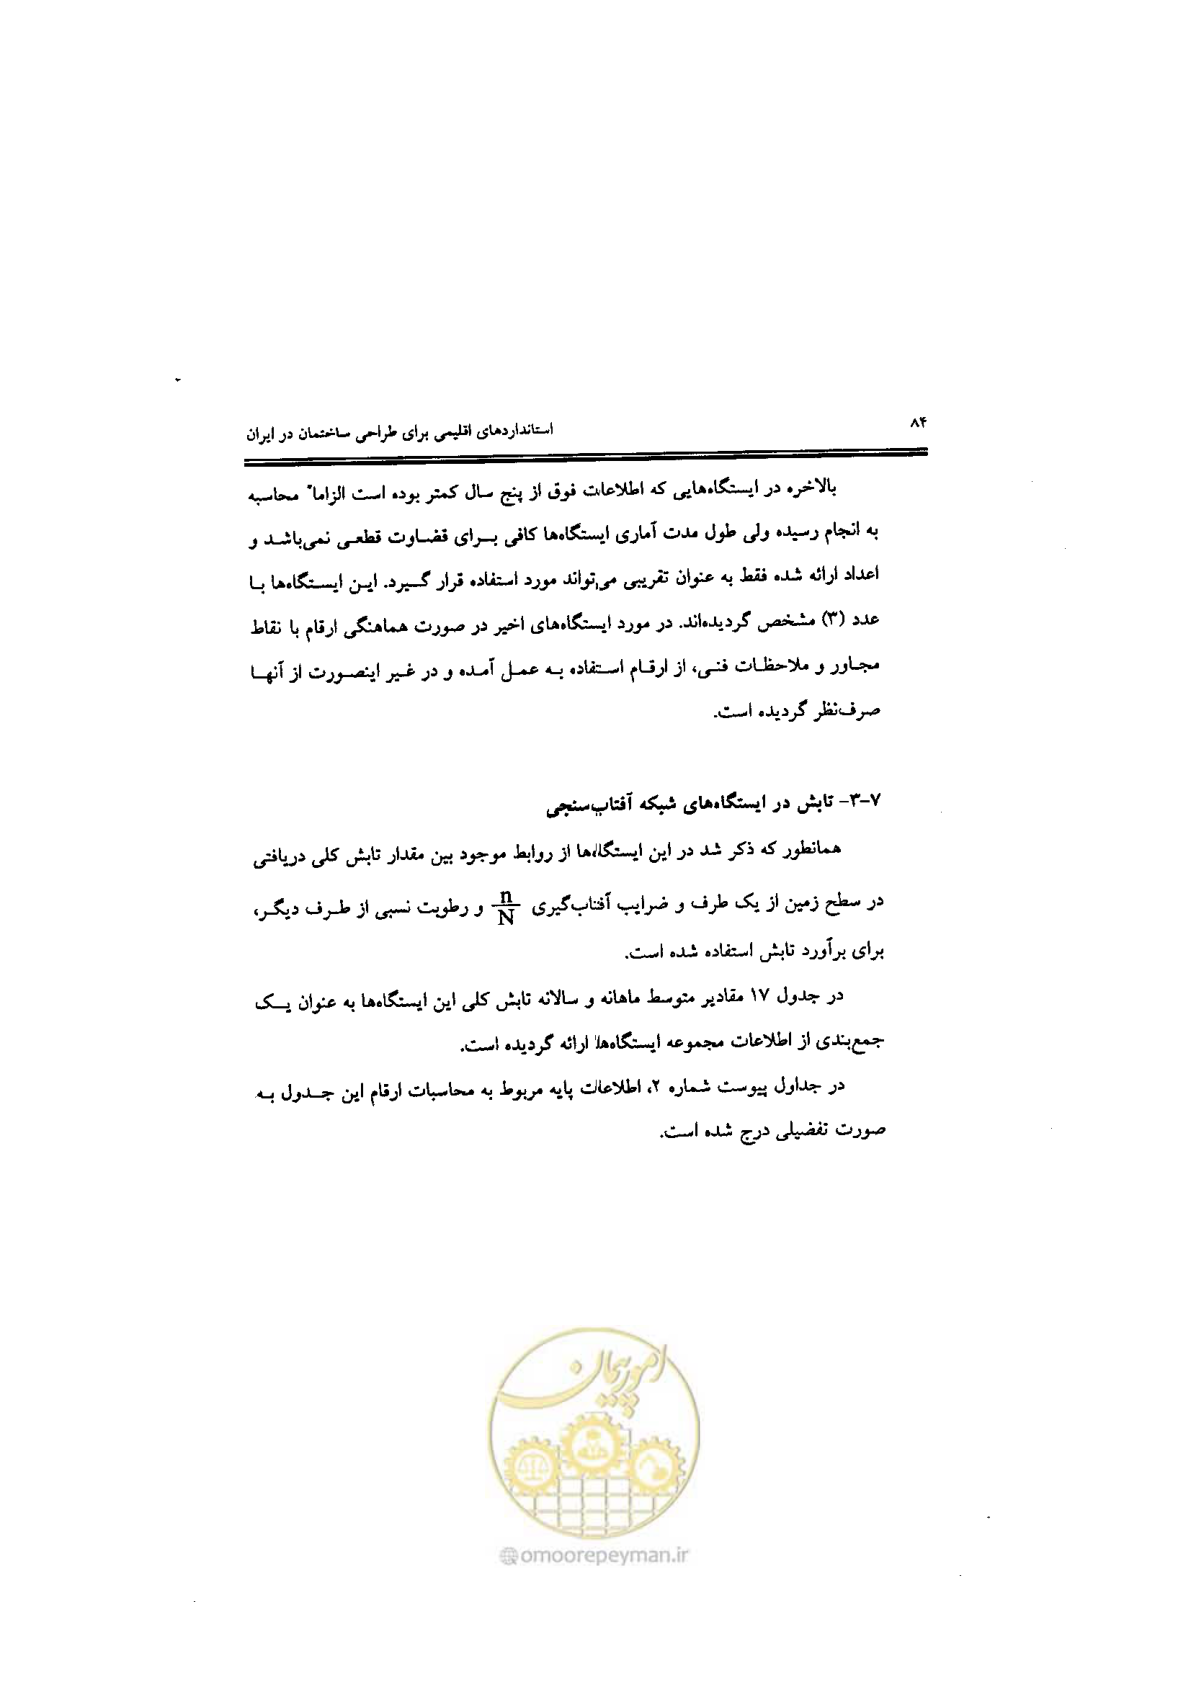 ۸۴
استانداردهای اقلیمی برای طراحی ساختمان در ایران
بالاخره در ایستگاه‌هایی که اطلاعات فوق از پنج سال کمتر بوده است الزاماً محاسبه
به انجام رسیده ولی طول مدت آماری ایستگاه‌ها کافی بـرای قضـاوت قطعـی نمی‌باشـد و
اعداد ارائه شده فقط به عنوان تقریبی می‌تواند مورد استفاده قرار گـیرد. ایـن ایسـتگاه‌ها بـا
عدد (۳) مشخص گردیده‌اند. در مورد ایستگاه‌های اخیر در صورت هماهنگی ارقام با نقاط
مجـاور و ملاحظـات فنـی، از ارقـام اسـتفاده بـه عمـل آمـده و در غـیر اینصـورت از آنهـا
صرف‌نظر گردیده است.
۷-۳- تابش در ایستگاه‌های شبکه آفتاب‌سنجی
همانطور که ذکر شد در این ایستگاه‌ها از روابط موجود بین مقدار تابش کلی دریافتی
در سطح زمین از یک طرف و ضرایب آفتاب‌گیری n/N و رطوبت نسبی از طـرف دیگـر،
برای برآورد تابش استفاده شده است.
در جدول ۱۷ مقادیر متوسط ماهانه و سالانه تابش کلی این ایستگاه‌ها به عنوان یـک
جمع‌بندی از اطلاعات مجموعه ایستگاه‌ها ارائه گردیده است.
در جداول پیوست شماره ۲، اطلاعات پایه مربوط به محاسبات ارقام این جـدول بـه
صورت تفضیلی درج شده است.
امور پیمان
@omoorepeyman.ir